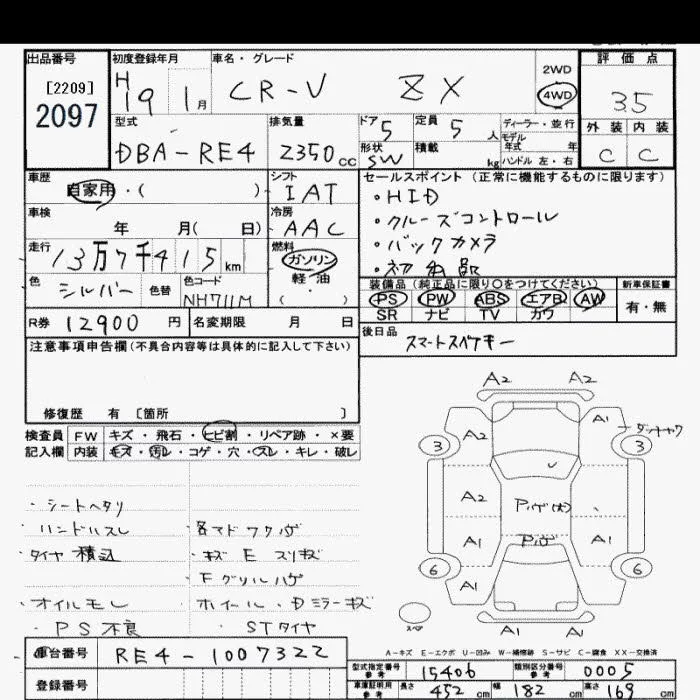 出品番号 初度登録年月 車名・グレード 評価点
[2209] H19 1月 CR-V ZX 2WD 4WD 3.5
2097
型式 排気量 ドア 5 定員 5人 ディーラー・並行 外装 内装
DBA-RE4 2350cc 形状 SW 積載 kg モデル年式 年 C C
ハンドル 左・右
車歴 シフト セールスポイント (正常に機能するものに限ります)
自家用・( ) IAT ・HID
車検 冷房 ・クルーズコントロール
年 月( 日) AAC ・バックカメラ
走行 燃料
13万7千415km ガソリン 軽・油 ( )
色 シルバー 色替 色コード NH711M
装備品 (純正品に限り〇をつけてください) 新車保証書
PS PW ABS エアB AW 有・無
SR ナビ TV カワ
R券 12900円 名変期限 月 日 後日品
スマートスペアキー
注意事項申告欄(不具合内容等は具体的に記入して下さい)
修復歴 有 〔箇所 〕
検査員 FW キズ・飛石・ヒビ割・リペア跡・×要
記入欄 内装 キズ・汚レ・コゲ・穴・スレ・キレ・破レ
・シートヘタリ
・ハンドルスレ ・各マドワクハゲ
・タイヤ積込 ・キズ E スリキズ
・Fグリルハゲ
・オイルモレ ホイール・Dミラーキズ
・PS不良 STタイヤ
A2 A2
A2 A1
3 3
A2
A1 A1
6 6
A1 A1
A1 A1
A-キズ E-エクボ U-凹み W-補修跡 S-サビ C-腐食 XX-交換済
車台番号 RE4-1007322
型式指定番号 参考 15406 類別区分番号 参考 0005
登録番号
車庫証明用 参考 長さ 452cm 幅 182cm 高さ 169cm